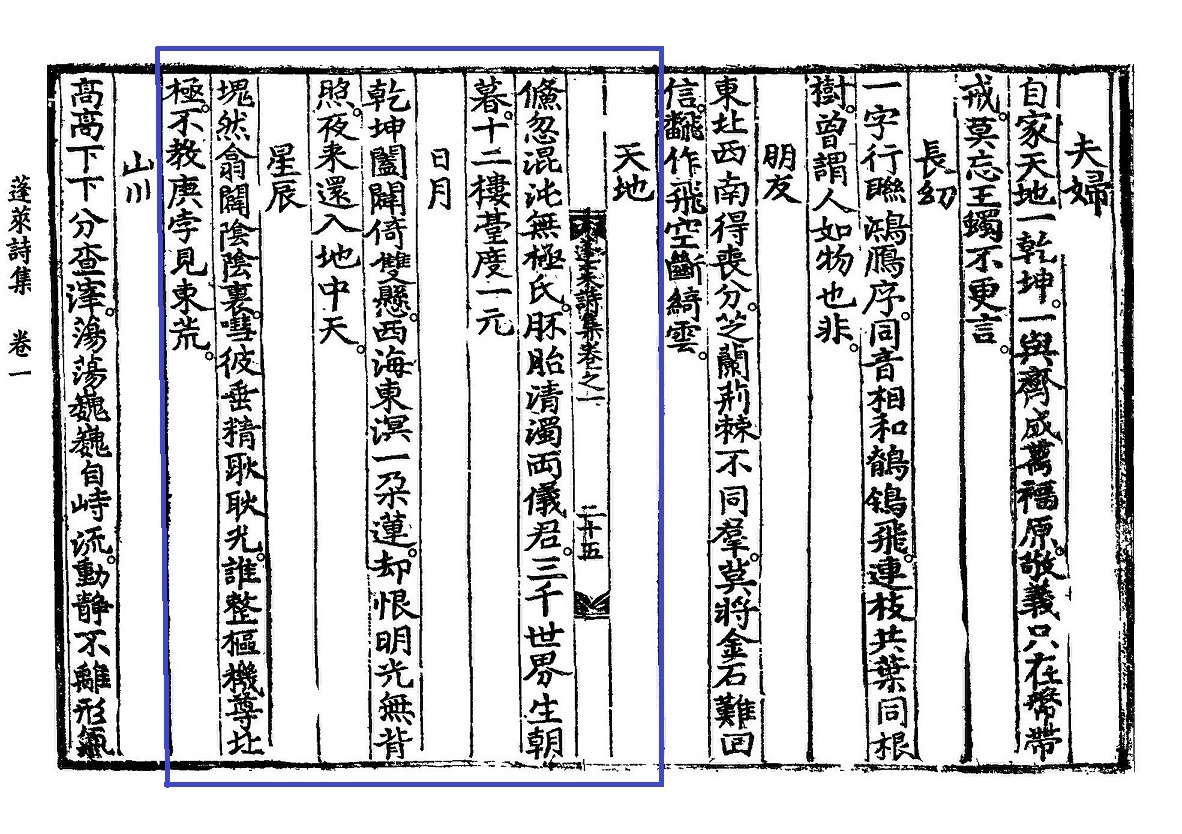 夫婦
自家天地一乾坤。一與齊成萬福原。敬義只在幣帶
戒。莫忘王鐲不更言。
長幼
一字行聮鴻鴈序。同音相和鶺鴒飛。連枝共葉同根
樹。曽謂人如物也非。
朋友
東北西南得喪分。芝蘭荊棘不同羣。莫將金石難回
信。飜作飛空斷綺雲。
天地
蓬萊詩集卷之一 二十五
儵忽混沌無極氏。胚胎清濁両儀君。三千世界生朝
暮。十二樓䑓度一元
日月
乾坤闔闢倚雙懸。西海東溟一朶蓮。却恨明光無背
照。夜来還入地中天。
星辰
塊然翕闢陰陰裏。嘒彼垂精耿耿光。誰整樞機尊北
極。不教庚孛見東荒。
山川
高高下下分查滓。蕩蕩巍巍自峙流。動静不離形氣
蓬萊詩集 卷一